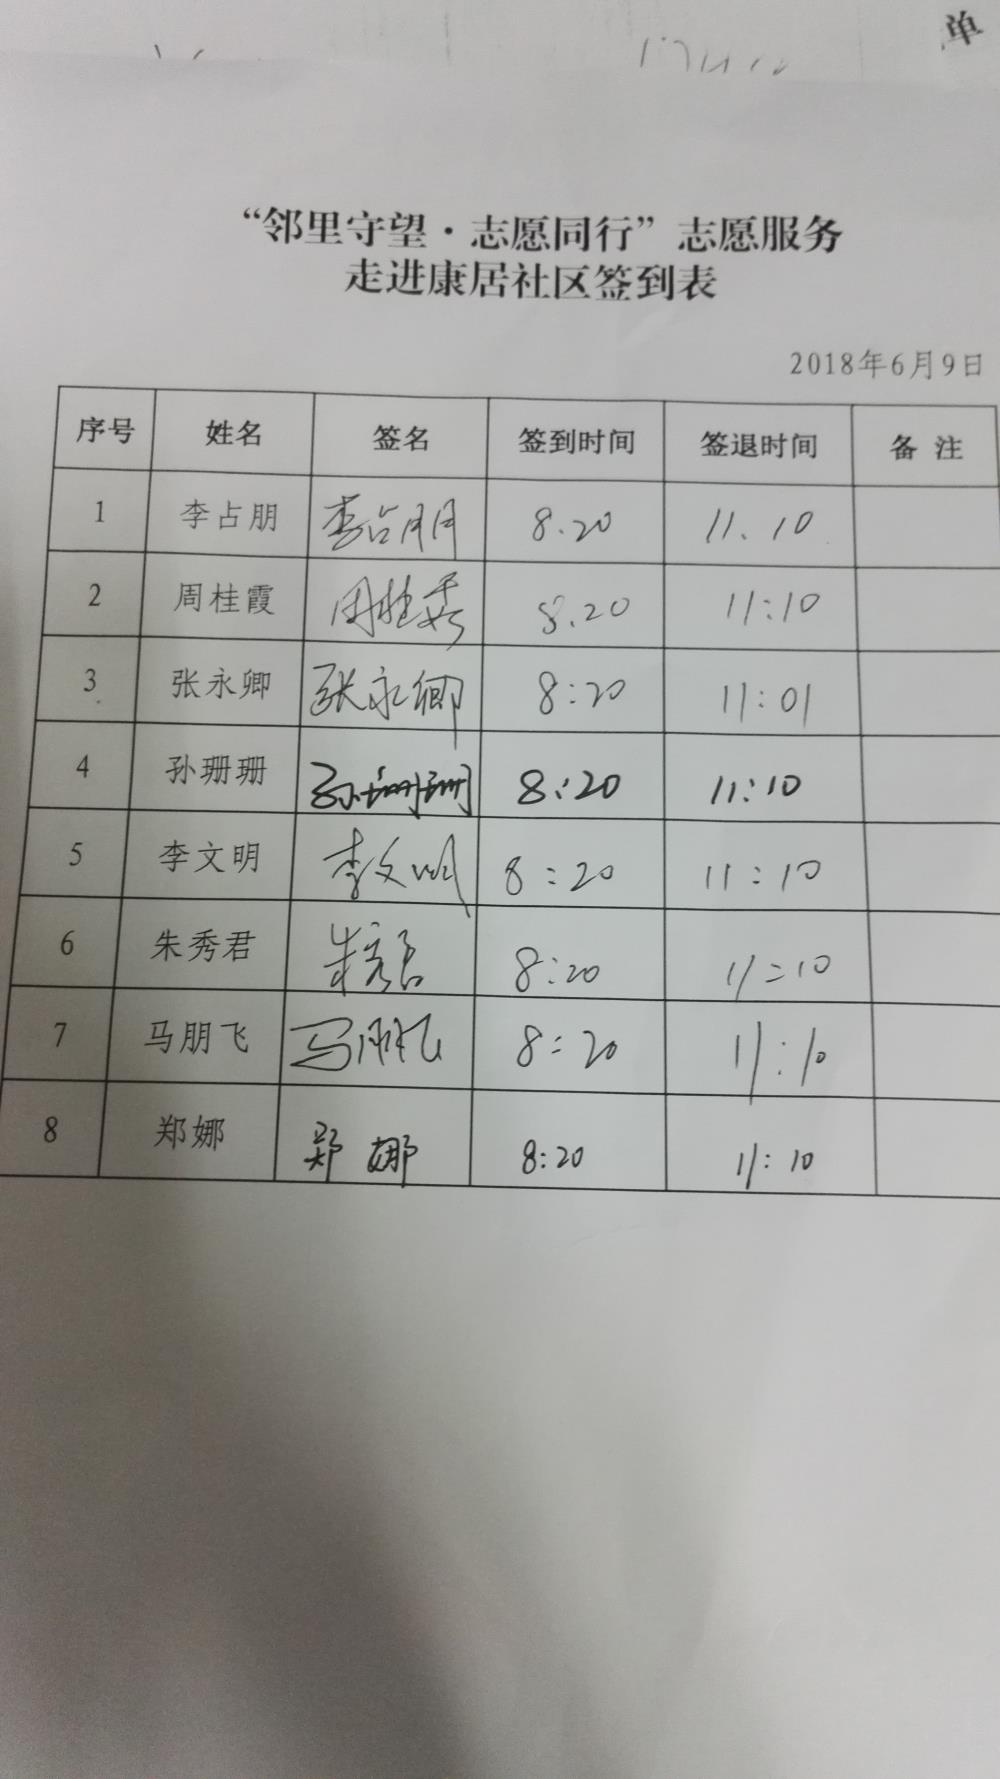 单
“邻里守望·志愿同行”志愿服务
走进康居社区签到表
2018年6月9日
序号 姓名 签名 签到时间 签退时间 备 注
1 李占朋 李占朋 8.20 11.10
2 周桂霞 周桂霞 8.20 11:10
3 张永卿 张永卿 8:20 11:01
4 孙珊珊 孙珊珊 8:20 11:10
5 李文明 李文明 8:20 11:10
6 朱秀君 朱秀君 8:20 11:10
7 马朋飞 马朋飞 8:20 11:10
8 郑娜 郑娜 8:20 11:10